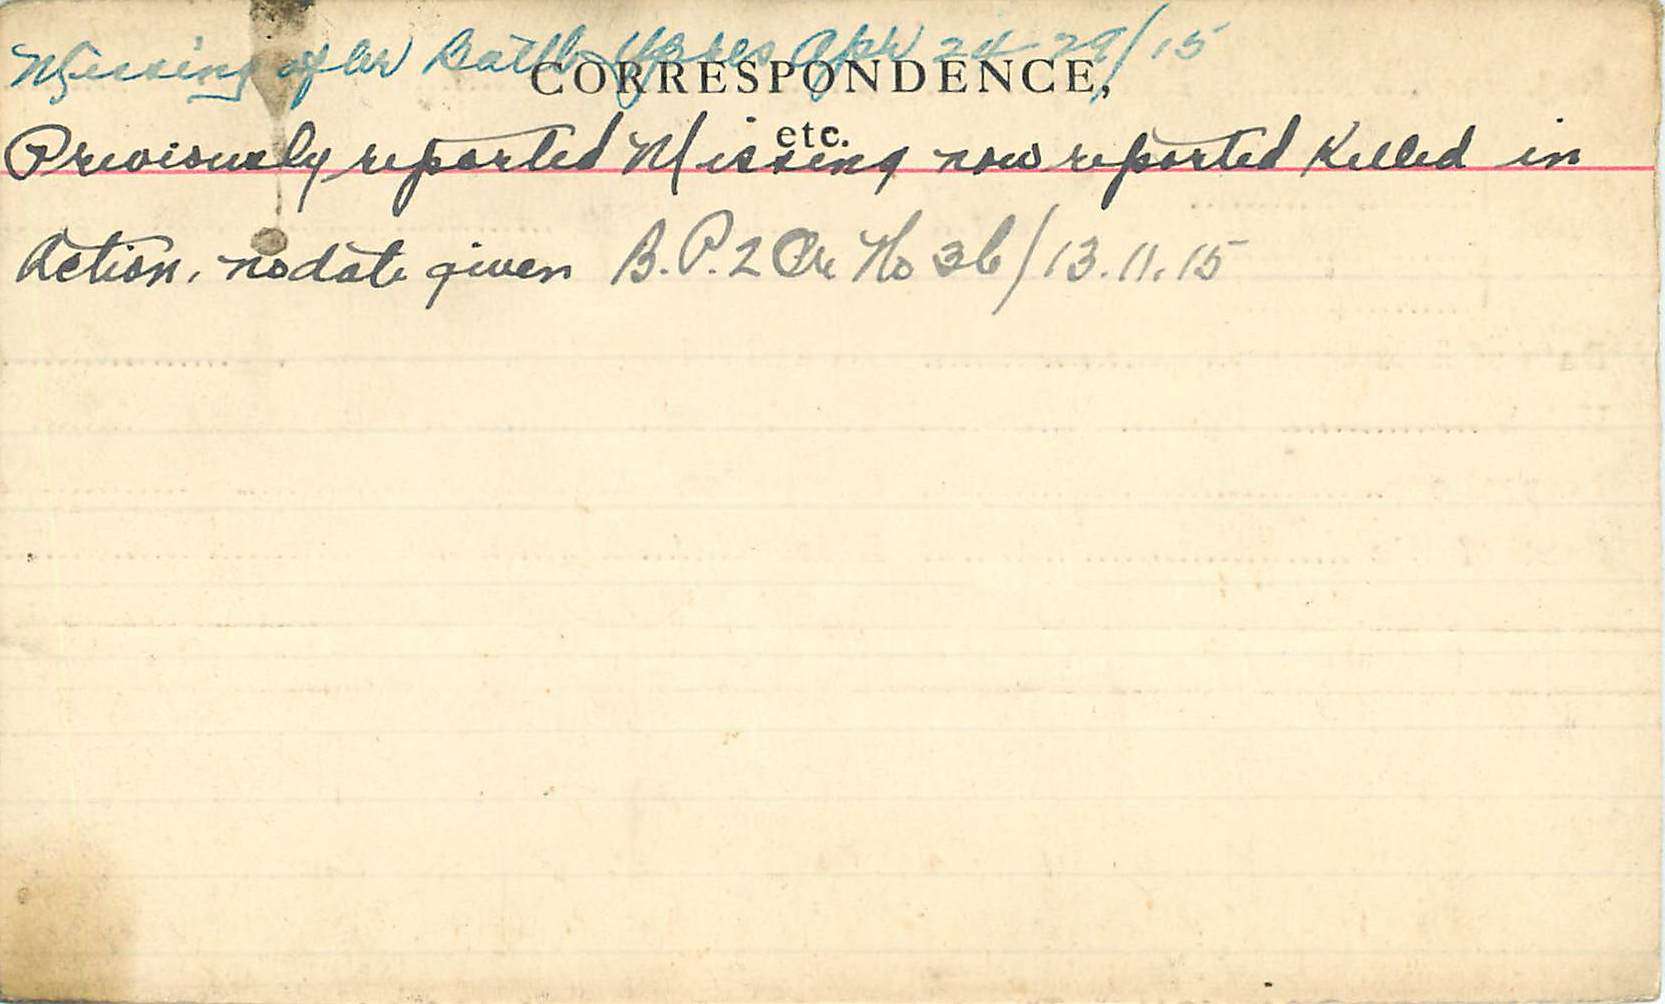 Missing after Battle Ypres Apr 24-29/15
CORRESPONDENCE,
etc.
Previously reported Missing now reported Killed in
Action, no date given B.P.2 Or No 36/13.11.15